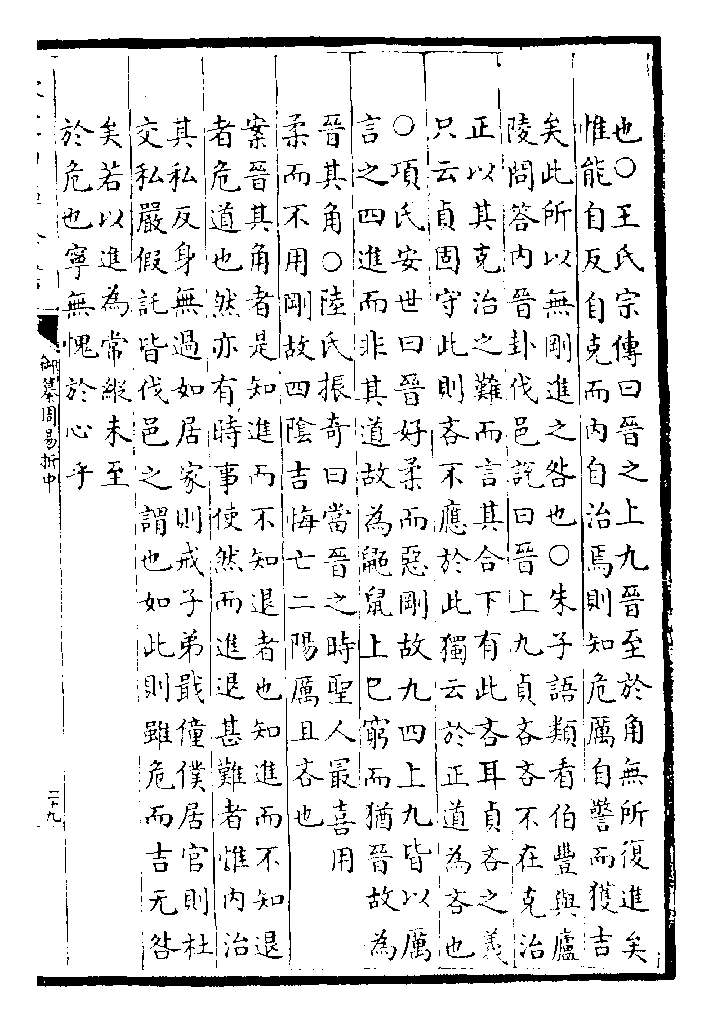 也○王氏宗傳曰晉之上九晉至於角無所復進矣
惟能自反自克而內自治焉則知危厲自警而獲吉
矣此所以無剛進之咎也○朱子語類看伯豐與廬
陵問答內晉卦伐邑說曰晉上九貞吝吝不在克治
正以其克治之難而言其合下有此吝耳貞吝之義
只云貞固守此則吝不應於此獨云於正道為吝也
○項氏安世曰晉好柔而惡剛故九四上九皆以厲
言之四進而非其道故為鼫鼠上已窮而猶晉故為
晉其角○陸氏振奇曰當晉之時聖人最喜用
柔而不用剛故四陰吉悔亡二陽厲且吝也
案晉其角者是知進而不知退者也知進而不知退
者危道也然亦有時事使然而進退甚難者惟內治
其私反身無過如居家則戒子弟戢僮僕居官則杜
交私嚴假託皆伐邑之謂也如此則雖危而吉无咎
矣若以進為常縱未至
於危也寧無愧於心乎
御纂周易折中
二十九